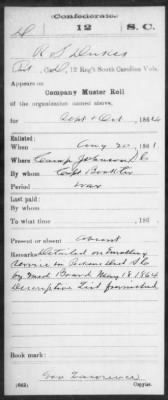 Confederate.
D 12 S.C.
R S Dukes
Pvt, Co. D, 12 Reg't South Carolina Vols.
Appears on
Company Muster Roll
of the organization named above,
for Sept & Oct, 1864
Enlisted:
When Aug 20, 1861
Where Camp Johnson SC
By whom Capt
Period War
Last paid:
By whom
To what time , 186 .
Present or absent Absent
Remarks: Detailed on Enrolling
service in Dist S C
by Med Board May 18 1864
Descriptive List furnished
Book mark:
(642) Copyist.